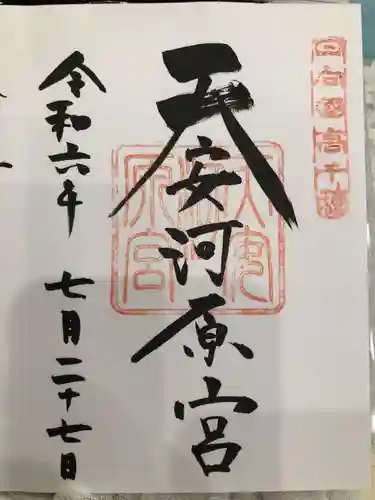 日向国高千穂
天安河原宮
天安河原宮
令和六年
七月二十七日